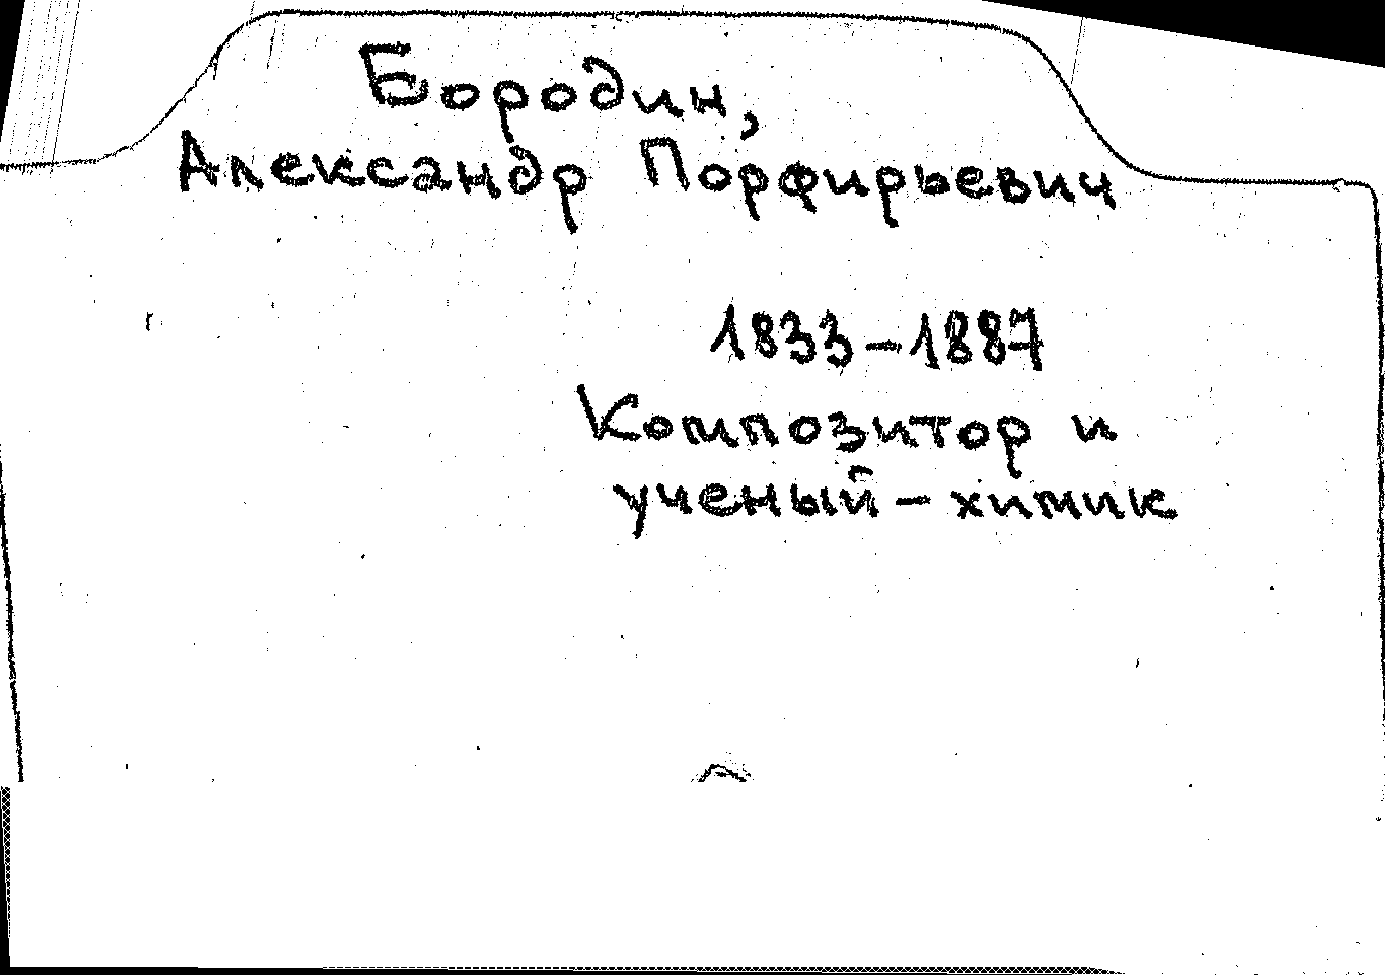 Бородин,
Александр Порфирьевич
1833-1887
Композитор и
ученый - химик